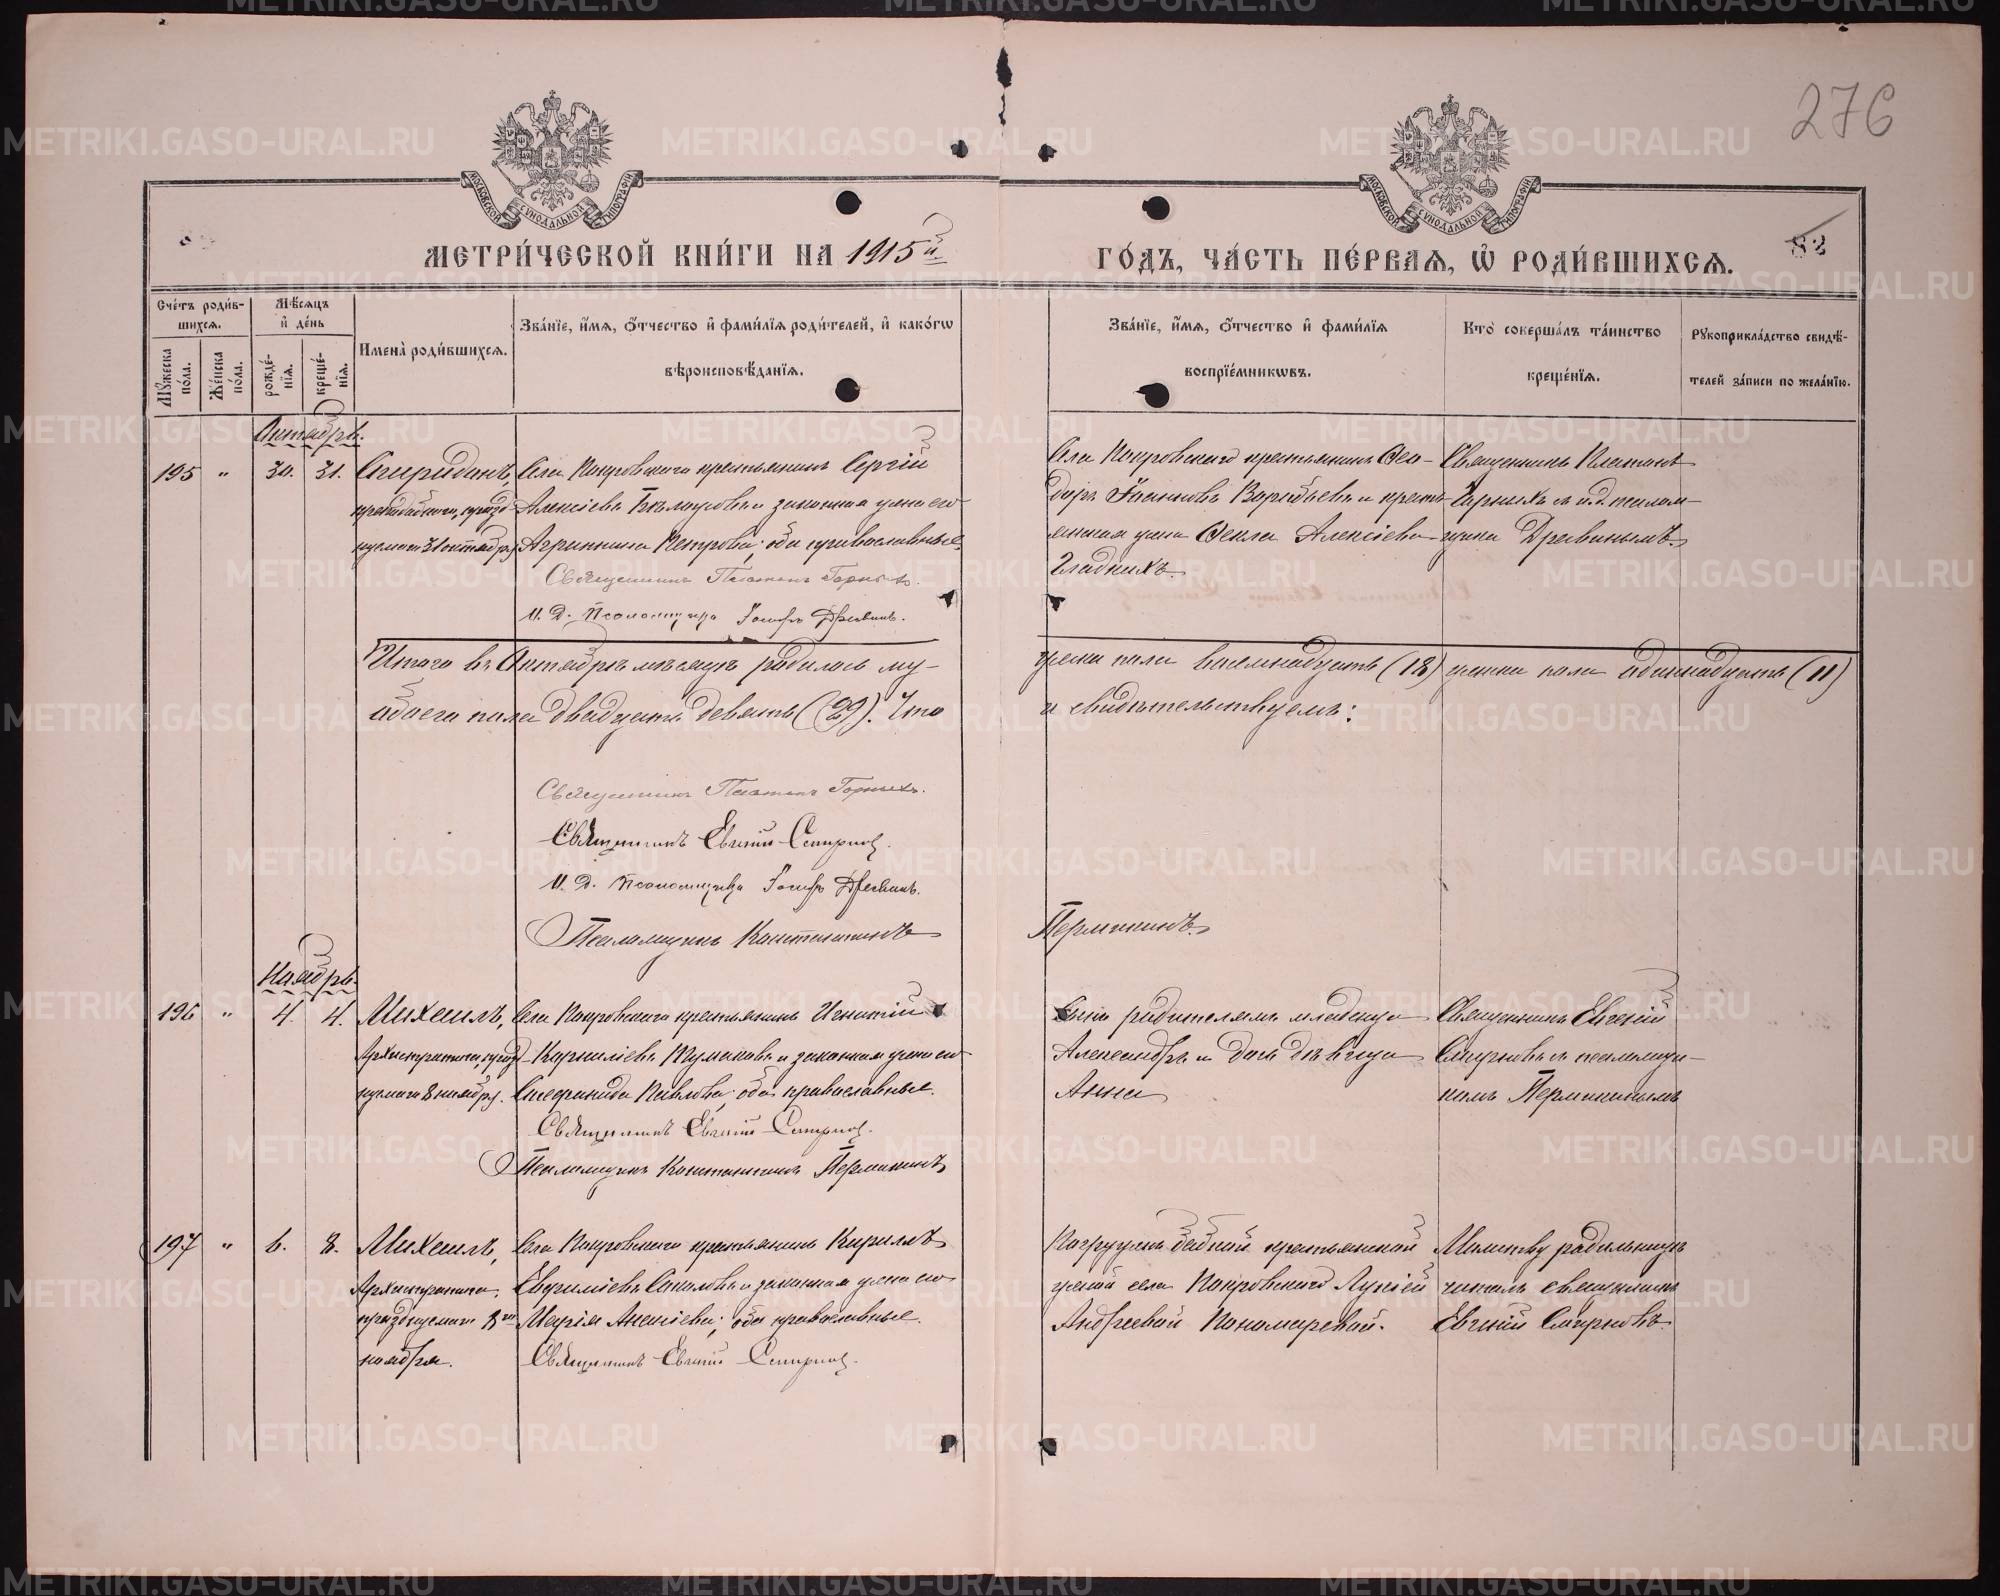 276
МОСКОВСКОЙ СѴНОДАЛЬНОЙ ТИПОГРАФІИ
МОСКОВСКОЙ СѴНОДАЛЬНОЙ ТИПОГРАФІИ
МЕТРИ́ЧЕСКОЙ КНИ́ГИ НА 1915й
ГО́ДЪ, ЧА́СТЬ ПЕ́РВАЯ, Ѡ РОДИ́ВШИХСЯ.
82
Сче́тъ роди́вшихся.
Му́жеска по́ла.
Же́нска по́ла.
Мѣ́сяцъ и де́нь
рожде́нїя.
креще́нїя.
Имена̀ роди́вшихся.
Зва́нїе, и́мя, о́тчество и фами́лїя роди́телей, и како́гѡ
вѣроисповѣ́данїя.
Зва́нїе, и́мя, о́тчество и фами́лїя
воспрїе́мникѡвъ.
Кто̀ соверша́лъ та́инство
креще́нїя.
Рукоприкла́дство свидѣ́-
телей за́писи по жела́нїю.
Октябрь.
195 " 30. 31. Спиридонъ,
празд
нуемаго 31 октября)
Села Покровскаго крестьянинъ Сергій
Алексіевъ Бѣлоусовъ и законная жена его
Агриппина Петрова; оба православные.
Священникъ Платонъ Горныхъ.
И. Д. Псаломщика Іосифъ Древинъ.
Села Покровскаго крестьянинъ Ѳео-
доръ Іоанновъ Воробьевъ и кресть
янская жена Ѳекла Алексіева
Гладкихъ.
Священникъ Платонъ
Горныхъ съ и.д. псалом-
щика Древинымъ.
Итого въ Октябрѣ мѣсяцѣ родилось му-
жеска пола восемнадцать (18) женска пола одиннадцать (11)
обоего пола двадцать девять (29). Что
и свидѣтельствуемъ:
Священникъ Платонъ Горныхъ.
Священникъ Евгеній Смирновъ.
И. Д. Псаломщика Іосифъ Древинъ.
Псаломщикъ Константинъ
Пермикинъ.
Ноябрь.
196 " 4. 4. Михаилъ,
Архистратига, празд
нуемаго 8 ноября.
Села Покровскаго крестьянинъ Игнатій
Корниліевъ Тумаковъ и законная жена его
Павлова; оба православные.
Священникъ Евгеній Смирновъ.
Псаломщикъ Константинъ Пермикинъ
родителямъ младенца
Александръ и дочь дѣвица
Анна
Священникъ Евгеній
Смирновъ съ псаломщи-
комъ Пермикинымъ
197 " 6. 8. Михаилъ,
Архистратига,
празднуемаго 8го
ноября.
Села Покровскаго крестьянинъ Кириллъ
Евфиміевъ Соколовъ и законная жена его
Марія Алексіева; оба православные.
Священникъ Евгеній Смирновъ.
Погруженъ бабкой крестьянской
женой села Покровскаго Лукіей
Андреевой Пономаревой.
Молитву родильницѣ
читалъ священникъ
Евгеній Смирновъ.
METRIKI.GASO-URAL.RU